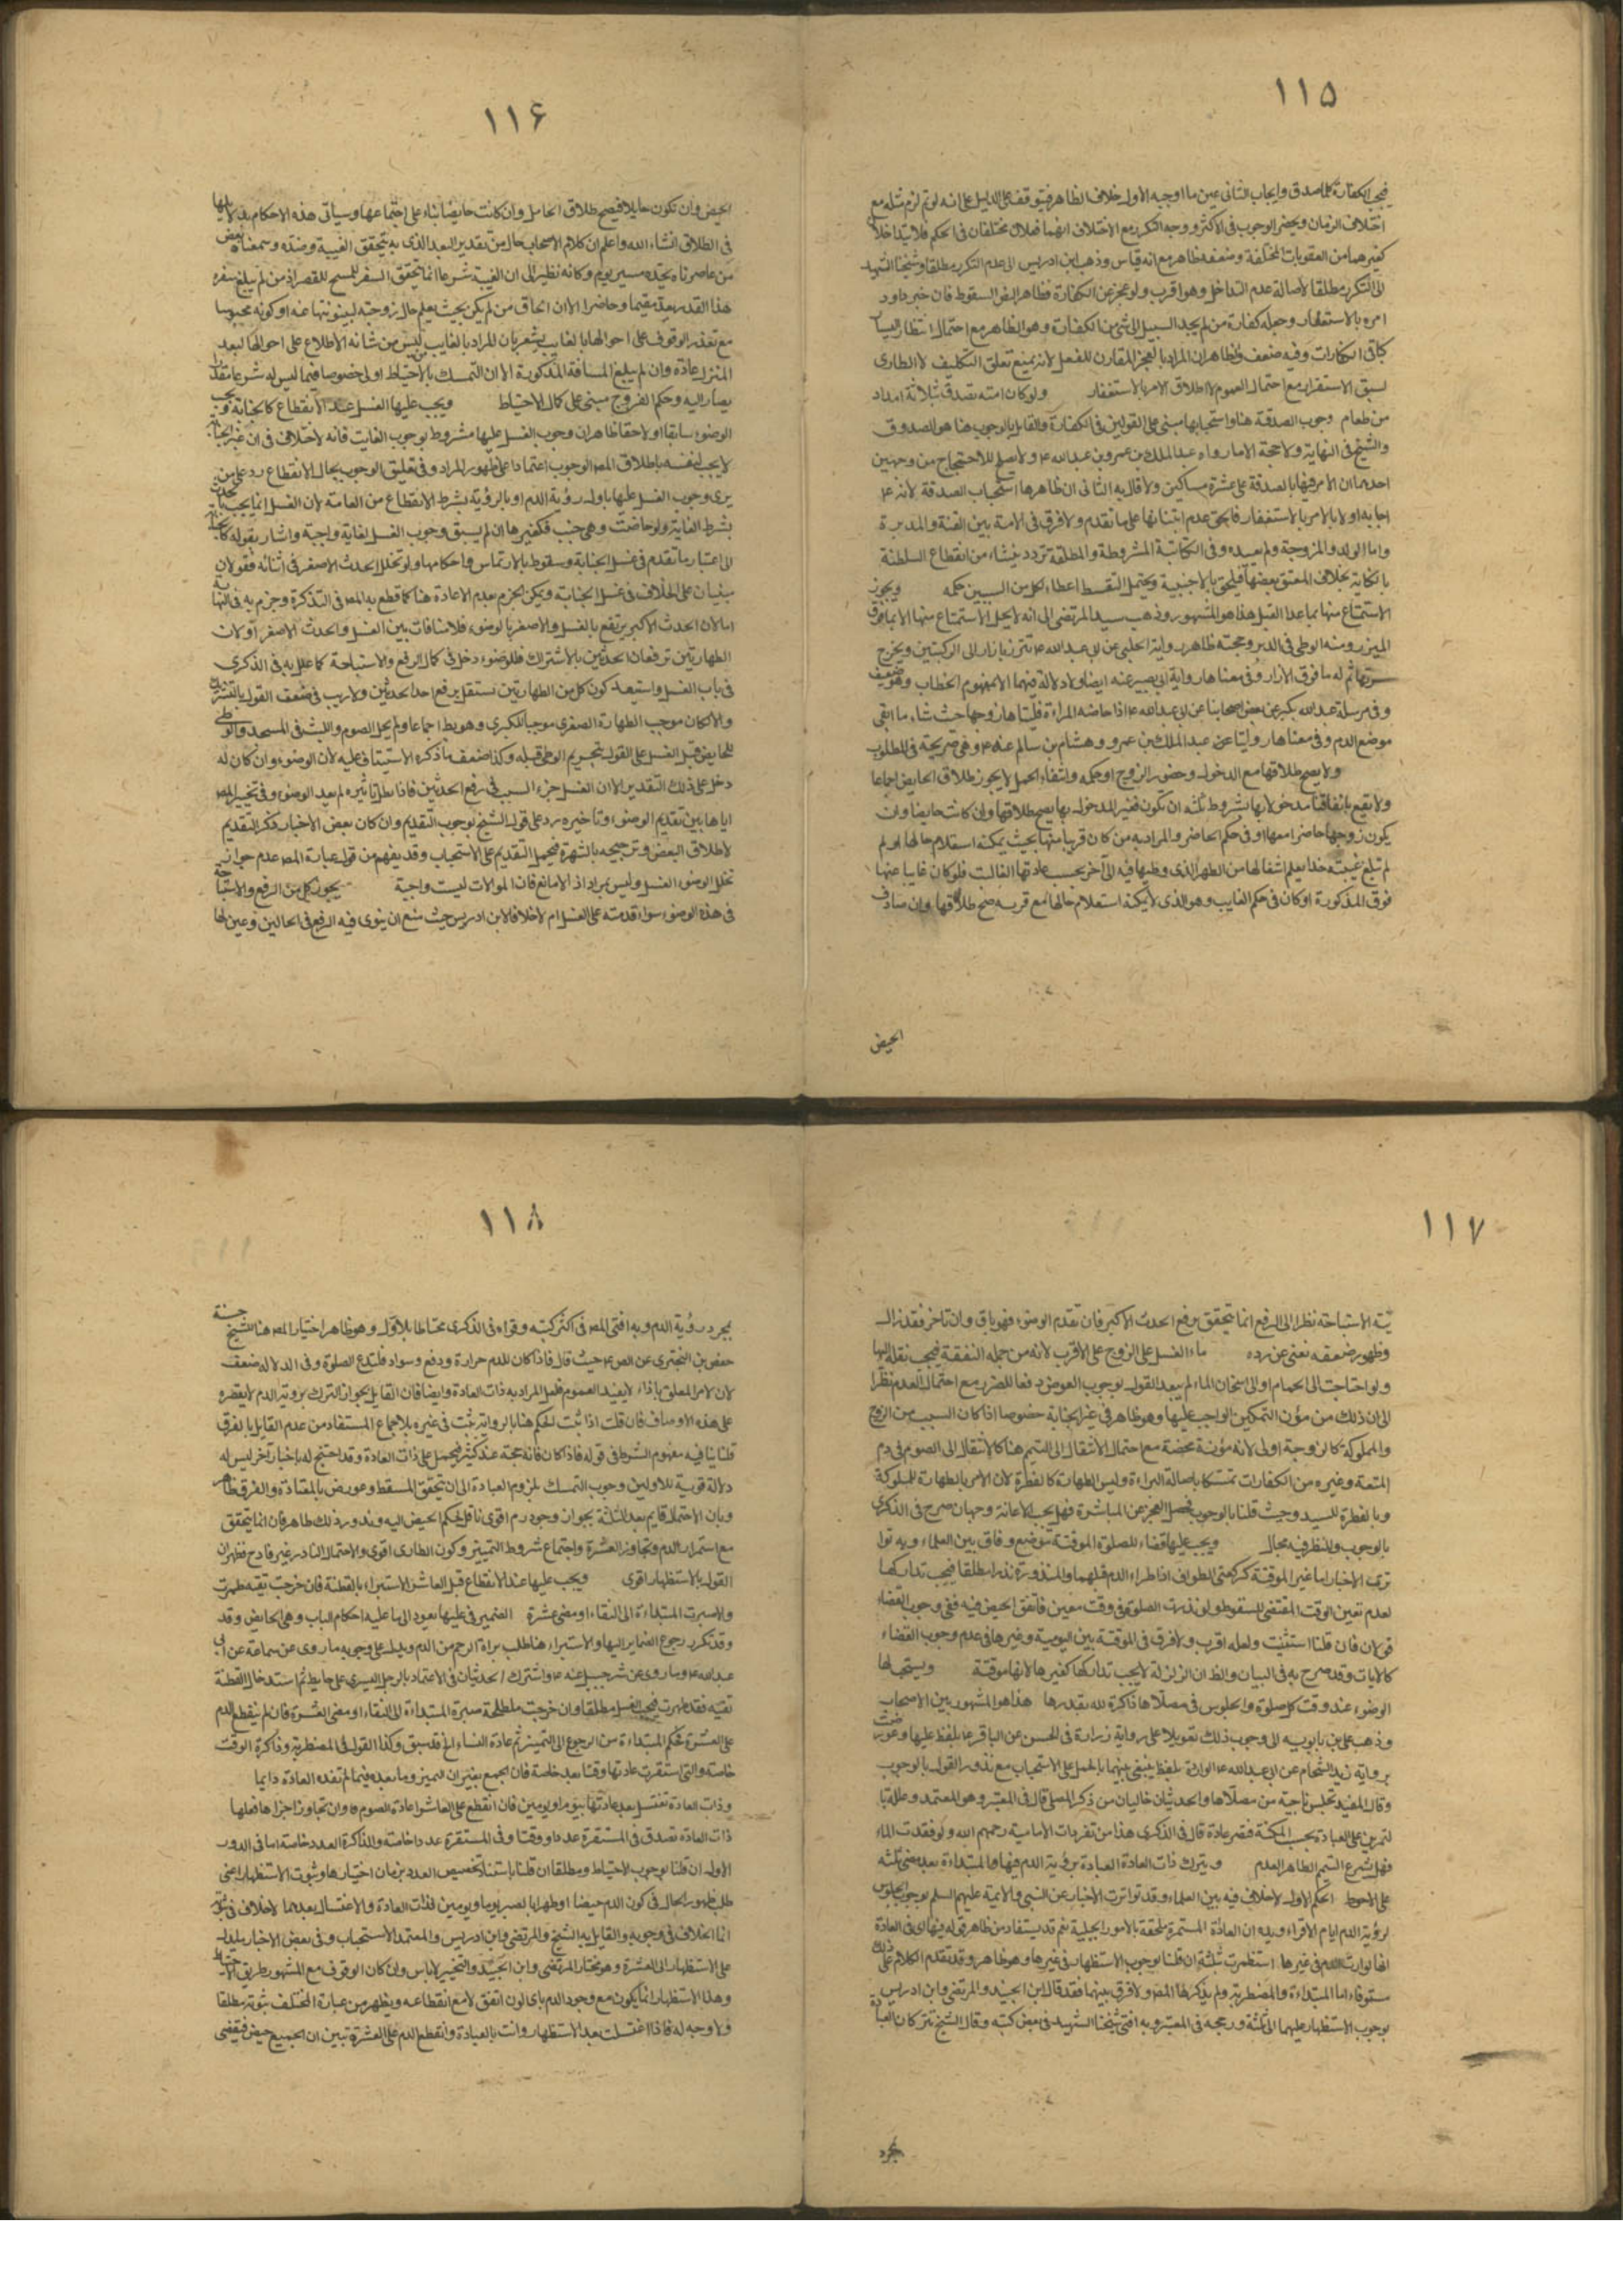 ١١٥
فيجب الكفارة كلما صدق وايجاب الثانى عين ما اوجبه الاول خلاف الظاهر فيتوقف على الدليل على انه لو تم لزم مثله مع
اختلاف الزمان ويحضر الوجوب فى الاكثر ووجه التكرر مع الاختلاف انهما فعلان مختلفان فى الحكم فلا يتداخلا
كغيرهما من العقوبات المختلفة وضعفه ظاهر مع انه قياس وذهب ابن ادريس الى عدم التكرر مطلقا وشيخنا الشهيد
الى التكرر مطلقا لاصالة عدم التداخل وهو اقرب ولو عجز عن الكفارة فظاهر السقوط فان خبر داود
امره بالاستغفار وجعله كفارة من لم يجد السبيل الى شئ من الكفارات وهو الظاهر مع احتمال انتظار اليسار
كباقى الكفارات وفيه ضعف والظاهر ان المراد بالعجز المقارن للفعل لانه يمنع تعلق التكليف لا الطارى
لسبق الاستقرار مع احتمال العموم لاطلاق الامر بالاستغفار ولو كان امته تصدق بثلاثة امداد
من طعام وجوب الصدقة هنا واستحبابها مبنى على القولين فى الكفارة والقايل بالوجوب هنا هو الصدوق
والشيخ فى النهاية ولا حجة الا ما رواه عبد الملك بن عمرو عن عبد الله ع ولا يصلح للاحتجاج من وجهين
احدهما ان الامر فيها بالصدقة على عشرة مساكين ولا قال به الثانى ان ظاهرها استحباب الصدقة لانه ع
اجابه اولا بالامر بالاستغفار فالحق عدم ابتنائها على ما تقدم ولا فرق فى الامة بين القنة والمدبرة
واما الولد والمزوجة ولم بعيده وفى المكاتبة المشروطة والمطلقة تردد ينشاء من انقطاع السلطنة
بالكتابة بخلاف المعتق بعضها فيلحق بالاجنبية ويحتمل التقسيط اعطاء لكل من السببين حكمه ويجوز
الاستمتاع منها بما عدا القبل هذا هو المشهور وذهب سيد المرتضى الى انه لا يحل الاستمتاع منها الا بما فوق
الميزر ومنه الوطى فى الدبر وحجته ظاهر رواية الحلبى عن ابى عبد الله ع تتزر بازار الى الركبتين ويخرج
سرتها ثم له ما فوق الازار وفى معناها رواية ابى بصير عنه ايضا ولا دلالة فيهما الا بمفهوم الخطاب وهو ضعيف
وفى مرسلة عبد الله بكير عن بعض اصحابنا عن ابى عبد الله ع اذا حاضه المراءة فلياتها زوجها حيث شاء ما اتقى
موضع الدم وفى معناها روايتا عن عبد الملك بن عمرو وهشام بن سالم عنه ع وهى صريحة فى المطلوب
ولا يصح طلاقها مع الدخول وحضور الزوج او حكمه وانتفاء الحمل لا يجوز طلاق الحايض اجماعا
ولا يقع باتفاقنا مدخولا بها بشروط ثلثه ان تكون فغير المدخول بها يصح طلاقها وان كانت حايضا وان
يكون زوجها حاضرا معها او فى حكم الحاضر والمراد به من كان قريبا منها بحيث يمكنه استعلام حالها او لم
لم تبلغ غيبته حدا يعلم انتقالها من الطهر الذى وطيها فيه الى آخر بحسب عادتها الغالبة فلو كان غايبا عنها
فوق المذكورة او كان فى حكم الغايب وهو الذى لا يمكنه استعلام حالها مع قربه صح طلاقها وان صادف
الحيض
١١۶
الحيض وان تكون حايلا فيصح طلاق الحامل وان كانت حايضا بناء على اجتماعهما وسياتى هذه الاحكام بدلايلها
فى الطلاق انشاء الله واعلم ان كلام الاصحاب خال من تقدير البعد الذى به يتحقق الغيبة وضده وسمعنا بعض
من عاصرناه يحده مسير يوم وكانه نظر الى ان الغيبة شرعا انما تحقق السفر المبيح للقصر اذ من لم يبلغ سفره
هذا القدر يعد مقيما وحاضرا الا ان الحاق من لم يكن بحيث يعلم حال زوجته لبينونتها عنه او كونه محبوسا
مع تعذر الوقوف على احوالها بالغايب يشعر بان المراد بالغايب ليس من شانه الاطلاع على احوالها لبعد
المنزل عادة وان لم يبلغ المسافة المذكورة الا ان التمسك بالاحتياط اولى خصوصا فيما ليس له شرعا مقدار
يصار اليه وحكم الفروج مبنى على كمال الاحتياط ويجب عليها الغسل عند الانقطاع كالجنابة ويجب
الوضوء سابقا او لاحقا ظاهر ان وجوب الغسل عليها مشروط بوجوب الغايت فانه لا خلاف فى ان غير الجنابة
لا يجب لنفسه باطلاق المص الوجوب اعتمادا على ظهور المراد وفى تعليق الوجوب بحال الانقطاع رد على من
يرى وجوب الغسل عليها باول رؤية الدم او بالرؤية بشرط الانقطاع من العامة لان الغسل انما يجب
بشرط الغاية ولو حاضت وهى جنب فكغيرها ان لم يسبق وجوب الغسل لغاية واجبة واشار بقوله كالجنابة
الى اعتبار ما تقدم فى غسل الجنابة وسقوط بالارتماس واحكامها ولو تخلل الحدث الاصغر فى اثنائه فقولان
مبنيان على الخلاف فى غسل الجنابة ويمكن الجزم بعدم الاعادة هنا كما قطع به المص فى التذكرة وجزم به فى النهاية
اما لان الحدث الاكبر يرتفع بالغسل والاصغر بالوضوء فلا منافات بين الغسل والحدث الاصغر او لان
الطهارتين ترفعان الحدثين بالاشتراك فللوضوء دخل فى كمال الرفع والاستباحة كما علل به فى الذكرى
فى باب الغسل واستبعد كون كل من الطهارتين مستقل برفع احد الحدثين ولا ريب فى ضعف القول بالتشريك
والا لكان موجب الطهارة الصغرى موجبا للكبرى وهو بط اجماعا ولم يحل الصوم واللبث فى المسجد والوطى
للحايض قبل الغسل على القول بتحريم الوطى قبله وكذا ضعف ما ذكره الاستيناف عليه لان الوضوء وان كان له
دخل على ذلك التقدير الا ان الغسل جزء السبب فى رفع الحدثين فاذا بطل تاثيره لم يعد الوضوء وفى تخيير المص
اياها بين تقديم الوضوء وتاخيره رد على قول الشيخ بوجوب التقديم وان كان بعض الاخبار ذكر التقديم
لاطلاق البعض وترجيحه بالشهرة فيحمل التقديم على الاستحباب وقد يفهم من قول عبارة المص عدم جواز
تخلل الوضوء الغسل وليس بمراد اذ لا مانع فان الموالات ليست واجبة يجوز كل من الرفع والاستباحة
فى هذه الوضوء سواء قدمته على الغسل ام لا خلافا لابن ادريس حيث منع ان ينوى فيه الرفع فى الحالين وعين لها
١١٧
نية الاستباحة نظرا الى الرفع انما تحقق برفع الحدث الاكبر فان تقدم الوضوء فهو باق وان تاخر فقد زال
وظهور ضعفه يغنى عن رده ماء الغسل على الزوج على الاقرب لانه من جملة النفقة فيجب نقله اليها
ولو احتاجت الى الحمام او الى اسخان الماء لم يبعد القول بوجوب العوض دفعا للضرر مع احتمال العدم نظرا
الى ان ذلك من مؤن التمكين الواجب عليها وهو ظاهر فى غير الجنابة خصوصا اذا كان السبب من الزوج
والمملوكة كالزوجة اولى لانه مؤنة محضة مع احتمال الانتقال الى التيمم هنا كالانتقال الى الصوم فى دم
المتعة وغيره من الكفارات تمسكا باصالة البراءة وليس الطهارة كالفطرة لان الامر بالطهارة للمملوكة
وبالفطرة للسيد وحيث قلنا بالوجوب فحصل العجز عن المباشرة فهل يجب الاعانة وجهان صرح فى الذكرى
بالوجوب وللنظر فيه مجال ويجب عليها قضاء للصلوة الموقتة موضع وفاق بين العلماء وبه توا
ترت الاخبار اما غير الموقتة كركعتى الطواف اذا طراء الدم قبلهما والمنذورة نذرا مطلقا فيجب تداركها
لعدم تعين الوقت المقتضى للسقوط ولو نذرت الصلوة فى وقت معين فاتفق الحيض فيه ففى وجوب القضاء
قولان فان قلنا استثنيت ولعله اقرب ولا فرق فى الموقتة بين اليومية وغيرها فى عدم وجوب القضاء
كالايات وقد صرح به فى البيان والظ ان الزلزلة لا يجب تداركها كغيرها لانها موقتة ويستحب لها
الوضوء عند وقت كل صلوة والجلوس فى مصلاها ذاكرة لله بقدرها هذا هو المشهور بين الاصحاب
وذهب على بن بابويه الى وجوب ذلك تعويلا على رواية زرارة فى الحسن عن الباقر ع بلفظ عليها وعورضت
برواية زيد الشحام عن ابى عبد الله ع الواردة بلفظ ينبغى فيهما بالحمل على الاستحباب مع نذور القول بالوجوب
وقال المفيد تجلس ناحية من مصلاها والحديثان خاليان من ذكر المصلى قال فى المعتبر وهو المعتمد وعلله بان
لتمرين على العبادة بحسب المكنة فتصير عادة قال فى الذكرى هذا من تفردات الامامية رحمهم الله ولو فقدت الماء
فهل يشرع التيمم الظاهر العدم ويترك ذات العادة العبادة برؤية الدم فيها والمبتداءة بعد مضى ثلثه
على الاحوط الحكم الاول لا خلاف فيه بين العلماء وقد تواترت الاخبار عن النبى والائمة عليهم السلم بوجوب الجلوس
لرؤية الدم ايام الاقراء ويده ان العادة المستمرة ملحقة بالامور الجبلية نعم قد يستفاد من ظاهر قوله فيها اى فى العادة
انها لو رات الدم فى غيرها استظهرت بثلثة ان قلنا بوجوب الاستظهار فى غيرها وهو ظاهر وقد تقدم الكلام على ذلك
مستوفاء اما المبتداءة والمضطربة ولم يذكرها المص ولا فرق بينهما فقد قال ابن الجنيد والمرتضى وابن ادريس
بوجوب الاستظهار عليهما الى ثلثة ورجحه فى المعتبر وبه افتى شيخنا الشهيد فى بعض كتبه وقال الشيخ تتركان العبادة
بمجرد
١١٨
بمجرد رؤية الدم وبه افتى المص فى اكثر كتبه وقواه فى الذكرى محتاطا بالاول وهو ظاهر اختيار المص هنا للشيخ حسنة
حفص بن البخترى عن الص ع حيث قال فاذا كان للدم حرارة ودفع وسواد فلتدع الصلوة وفى الدلالة ضعف
لان الامر المعلق باذا لا يفيد العموم فلعل المراد به ذات العادة وايضا فان القايل بجواز الترك برؤية الدم لا يقصره
على هذه الاوصاف فان قلت اذا ثبت الحكم هنا بالرواية ثبت فى غيره بالاجماع المستفاد من عدم القايل بالفرق
قلنا ينافيه مفهوم الشرط فى قوله فاذا كان فانه حجة عند كثير فيحمل على ذات العادة وقد احتج له باخبار اخر ليس له
دلالة قوية للاولين وجوب التمسك بلزوم العبادة الى ان تحقق المسقط وعورض بالمعتادة والفرق ظاهر
وبان الاحتمال قايم بعد الثلثة بجواز وجود دم اقوى ناقل لحكم الحيض اليه وندور ذلك ظاهر فان انما يتحقق
مع استمرار الدم وتجاوز العشرة واجتماع شروط التمييز وكون الطارى اقوى والاحتمال النادر غير قادح فظهر ان
القول بالاستظهار اقوى ويجب عليها عند الانقطاع قبل العاشر الاستبراء بالقطنة فان خرجت نقية طهرت
والا صبرت المبتداءة الى النقاء او مضى عشرة الضمير فى عليها يعود الى ما عليه احكام الباب وهى الحايض وقد
وقد تكرر رجوع الضماير اليها والاستبراء هنا طلب براءة الرحم من الدم ويدل على وجوبه ما روى عن سماعة عن ابى
عبد الله ع وما روى عن شرحبيل عنه ع واشترك الحديثان فى الاعتماد بالرجل اليسرى على حايط ثم استدخال القطنة
نقية فقد طهرت فيجب الغسل مطلقا وان خرجت ملطخة صبرة المبتداءة الى النقاء او مضى العشرة فان لم ينقطع الدم
على العشرة فحكم المبتداءة من الرجوع الى التمييز ثم عادة النساء الخ قد سبق وكذا القول فى المضطربة وذاكرة الوقت
خاصة والتى استقرت عادتها وقتا بعد خاصة فان الجميع يعتبران التمييز وما بعده فيما لم تفده العادة دايما
وذات العادة تغتسل بعد عادتها بيوم او يومين فان انقطع على العاشر اعادة الصوم وان تجاوز اجزاها فعلها
ذات العادة تصدق فى المستقرة عددا ووقتا وفى المستقرة عددا خاصة والذاكرة العدد خاصة اما فى الدور
الاول ان قلنا بوجوب الاحتياط ومطلقا ان قلنا باستناد تخصيص العدد بزمان اختيارها وثبوت الاستظهار اعنى
طلب ظهور الحال فى كون الدم حيضا او طهرا بالصبر يوما ويومين لذات العادة والاغتسال بعدهما لا خلاف فى ثبوته
انما الخلاف فى وجوبه والقايل به الشيخ والمرتضى وابن ادريس والمعتمد الاستحباب وفى بعض الاخبار ما يدل
على الاستظهار الى العشرة وهو مختار المرتضى وابن الجنيد والتخيير لا باس وان كان الوقوف مع المشهور طريق الاحتياط
وهذا الاستظهار انما يكون مع وجود الدم باى لون اتفق لا مع انقطاعه ويظهر من عبارة المختلف ثبوته مطلقا
ولا وجه له فاذا اغتسلت بعد الاستظهار واتت بالعبادة وانقطع الدم على العشرة تبين ان الجميع حيض فيقضى